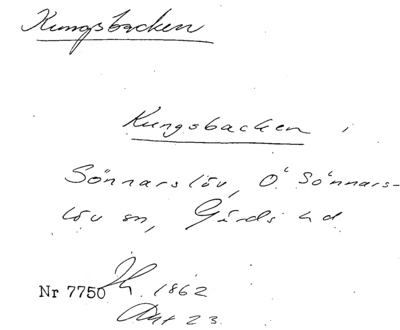 Kungsbacken
Kungsbacken i
Sönnarslöv, Ö Sönnars-
löv sn, Gärds hd
Nr 7750 1862
Akt 23